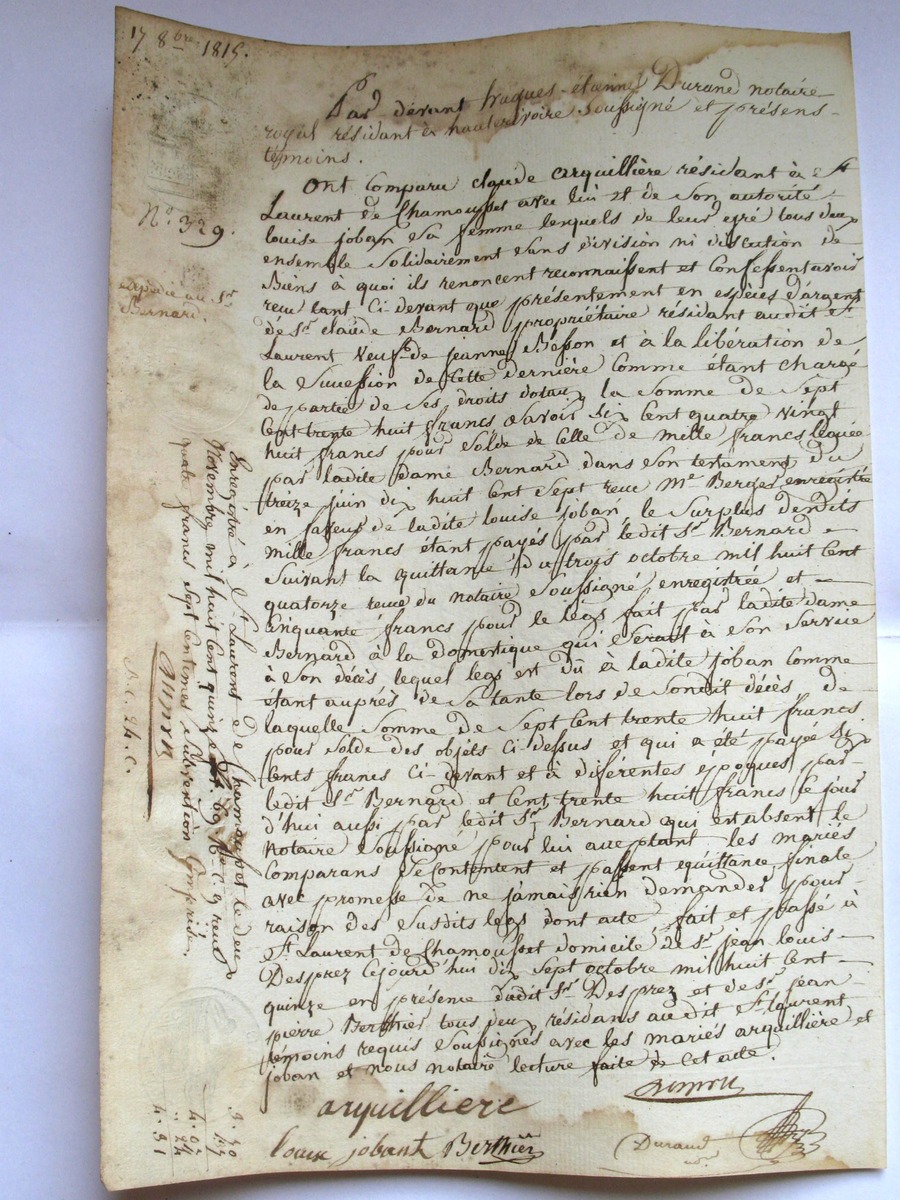 17 8bre 1815.
Par devant Jraques-étienne Durand notaire
royal résidant à hauterivoire soussigné et présens
témoins.
Ont Comparu claude arquillière résidant à St
Laurent de Chamousset avec lui et de son autorité
louise joban sa femme lesquels de leur gré tous deux
ensemble solidairement sans division ni discution de
Biens à quoi ils renoncent reconnaissent et Confessent avoir
reçu tant Ci devant que présentement en espèces d'argent
de Sr claude Bernard propriétaire résidant audit St
Laurent Veuf de jeanne Besson et à la libération de
la Succession de Cette dernière Comme étant chargé
de partie de ses droits la Somme de Sept
Cent trente huit francs Savoir Six Cent quatre vingt
huit francs pour Solde de Celle de mille francs léguée
par ladite dame Bernard dans Son testament du
treize juin dix huit Cent Sept reçu Me Berger enregistré
en faveur de ladite louise joban, le Surplus desdits
mille francs étant payés par ledit Sr Bernard
Suivant la quittance du trois octobre mil huit Cent
quatorze reçue du notaire Soussigné enregistrée et
Cinquante francs pour le legs fait par ladite dame
Bernard à la domestique qui Serait à Son Service
à Son décès lequel legs est dû à ladite joban Comme
étant auprès de Sa tante lors de Sondit décès de
laquelle Somme de Sept Cent trente huit francs
pour Solde des objets Ci dessus et qui a été payée Six
Cents francs Ci-devant et à différentes époques par
ledit Sr Bernard et Cent trente huit francs Ce jour
d'hui aussi par ledit Sr Bernard qui est absent le
notaire Soussigné pour lui acceptant les mariés
Comparans Se Contentent et passent quittance finale
avec promesse de ne jamais rien demander pour
raison des Susdits legs dont acte fait et passé à
St Laurent de Chamousset domicile de Sr jean louis
Desprez Cejourd'hui dix Sept octobre mil huit Cent
quinze en présence dudit Sr Desprez et de Sr jean
pierre Berthier tous deux résidans audit St laurent
témoins requis Soussignés avec les mariés arquillière et
joban et nous notaire lecture faite de Cet acte.
arquilliere
louise jobant Berthier
Durand
No 329.
expédié au Sr
Bernard.
Enregistré à St Laurent de Chamousset le deux
Novembre mil huit Cent quinze fo 69 Ro C. 9 reçu
quatre francs Sept Centimes Subvention Comprise.
B. C. 24. C.
3. 70
37
4. 07
24
4. 31